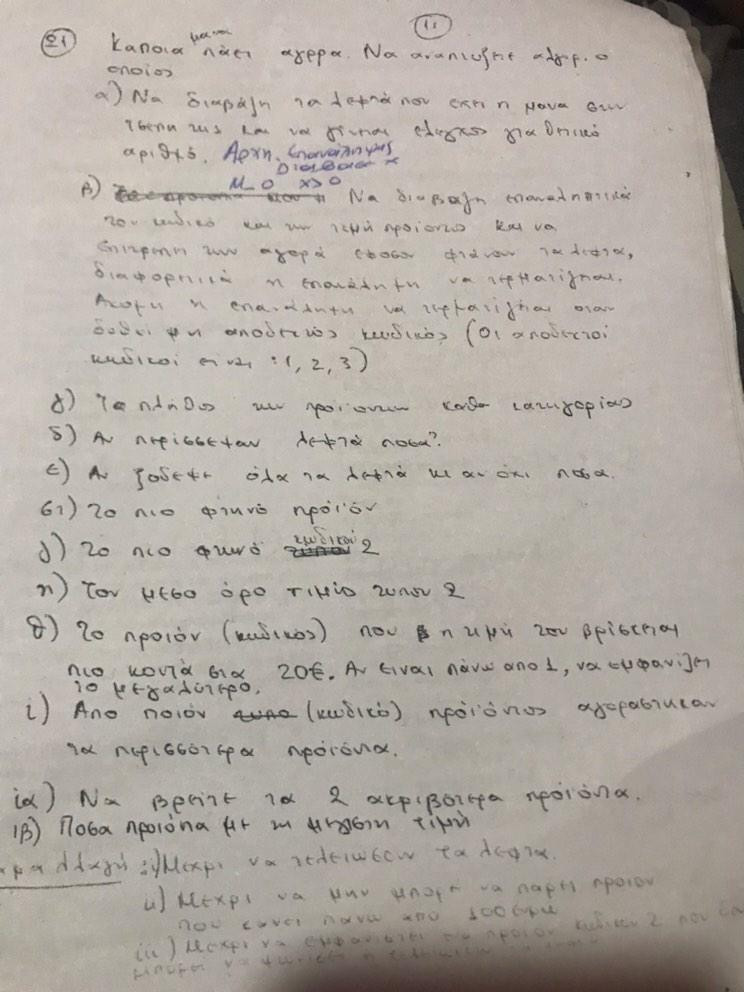 11
21 Καποια μανα πάει αγορα. Να αναπτυξετε αλγορ. ο
οποίος
α) Να διαβάζη τα λεφτά που εχει η μανα στην
τσεπη της και να γίνεται ελεγχος για θετικό
αριθμό. Αρχη_επανάληψης
Διαβασε x
Μ_Ο x>0
β) Να διαβαζη επαναληπτικά
τον κωδικό και την τιμή προϊοντος και να
επιτρεπη την αγορά εφοσον φτάνουν τα λεφτα,
διαφορετικά η επανάληψη να τερματίζηται.
Ακομη η επανάληψη να τερματίζηται οταν
δοθει μη αποδεκτός κωδικός (Οι αποδεκτοί
κωδικοί ειναι : 1, 2, 3)
γ) Το πλήθος των προϊοντων καθε κατηγορίας
δ) Αν περίσσεψαν λεφτά ποσα?
ε) Αν ξοδεψε όλα τα λεφτά κι αν όχι ποσα.
στ) Το πιο φτηνό προϊόν
ζ) Το πιο φτηνό κωδικού 2
η) Τον μεσο όρο τιμών τυπου 2
θ) Το προιόν (κωδικος) που η τιμή του βρίσκεται
πιο κοντά στα 20€. Αν ειναι πάνω απο 1, να εμφανίζει
το μεγαλύτερο.
ι) Απο ποιόν (κωδικό) προϊόντος αγοραστηκαν
τα περισσότερα προϊόντα.
ια) Να βρείτε τα 2 ακριβότερα προϊόντα.
ιβ) Ποσα προιοντα με τη μέγιστη τιμή
i) Μεχρι να τελειώσουν τα λεφτα.
ii) Μεχρι να μην μπορεί να παρει προιον
που κανει πανω απο 100 ευρω
iii) Μεχρι να εμφανιστει προιον κωδικου 2 που